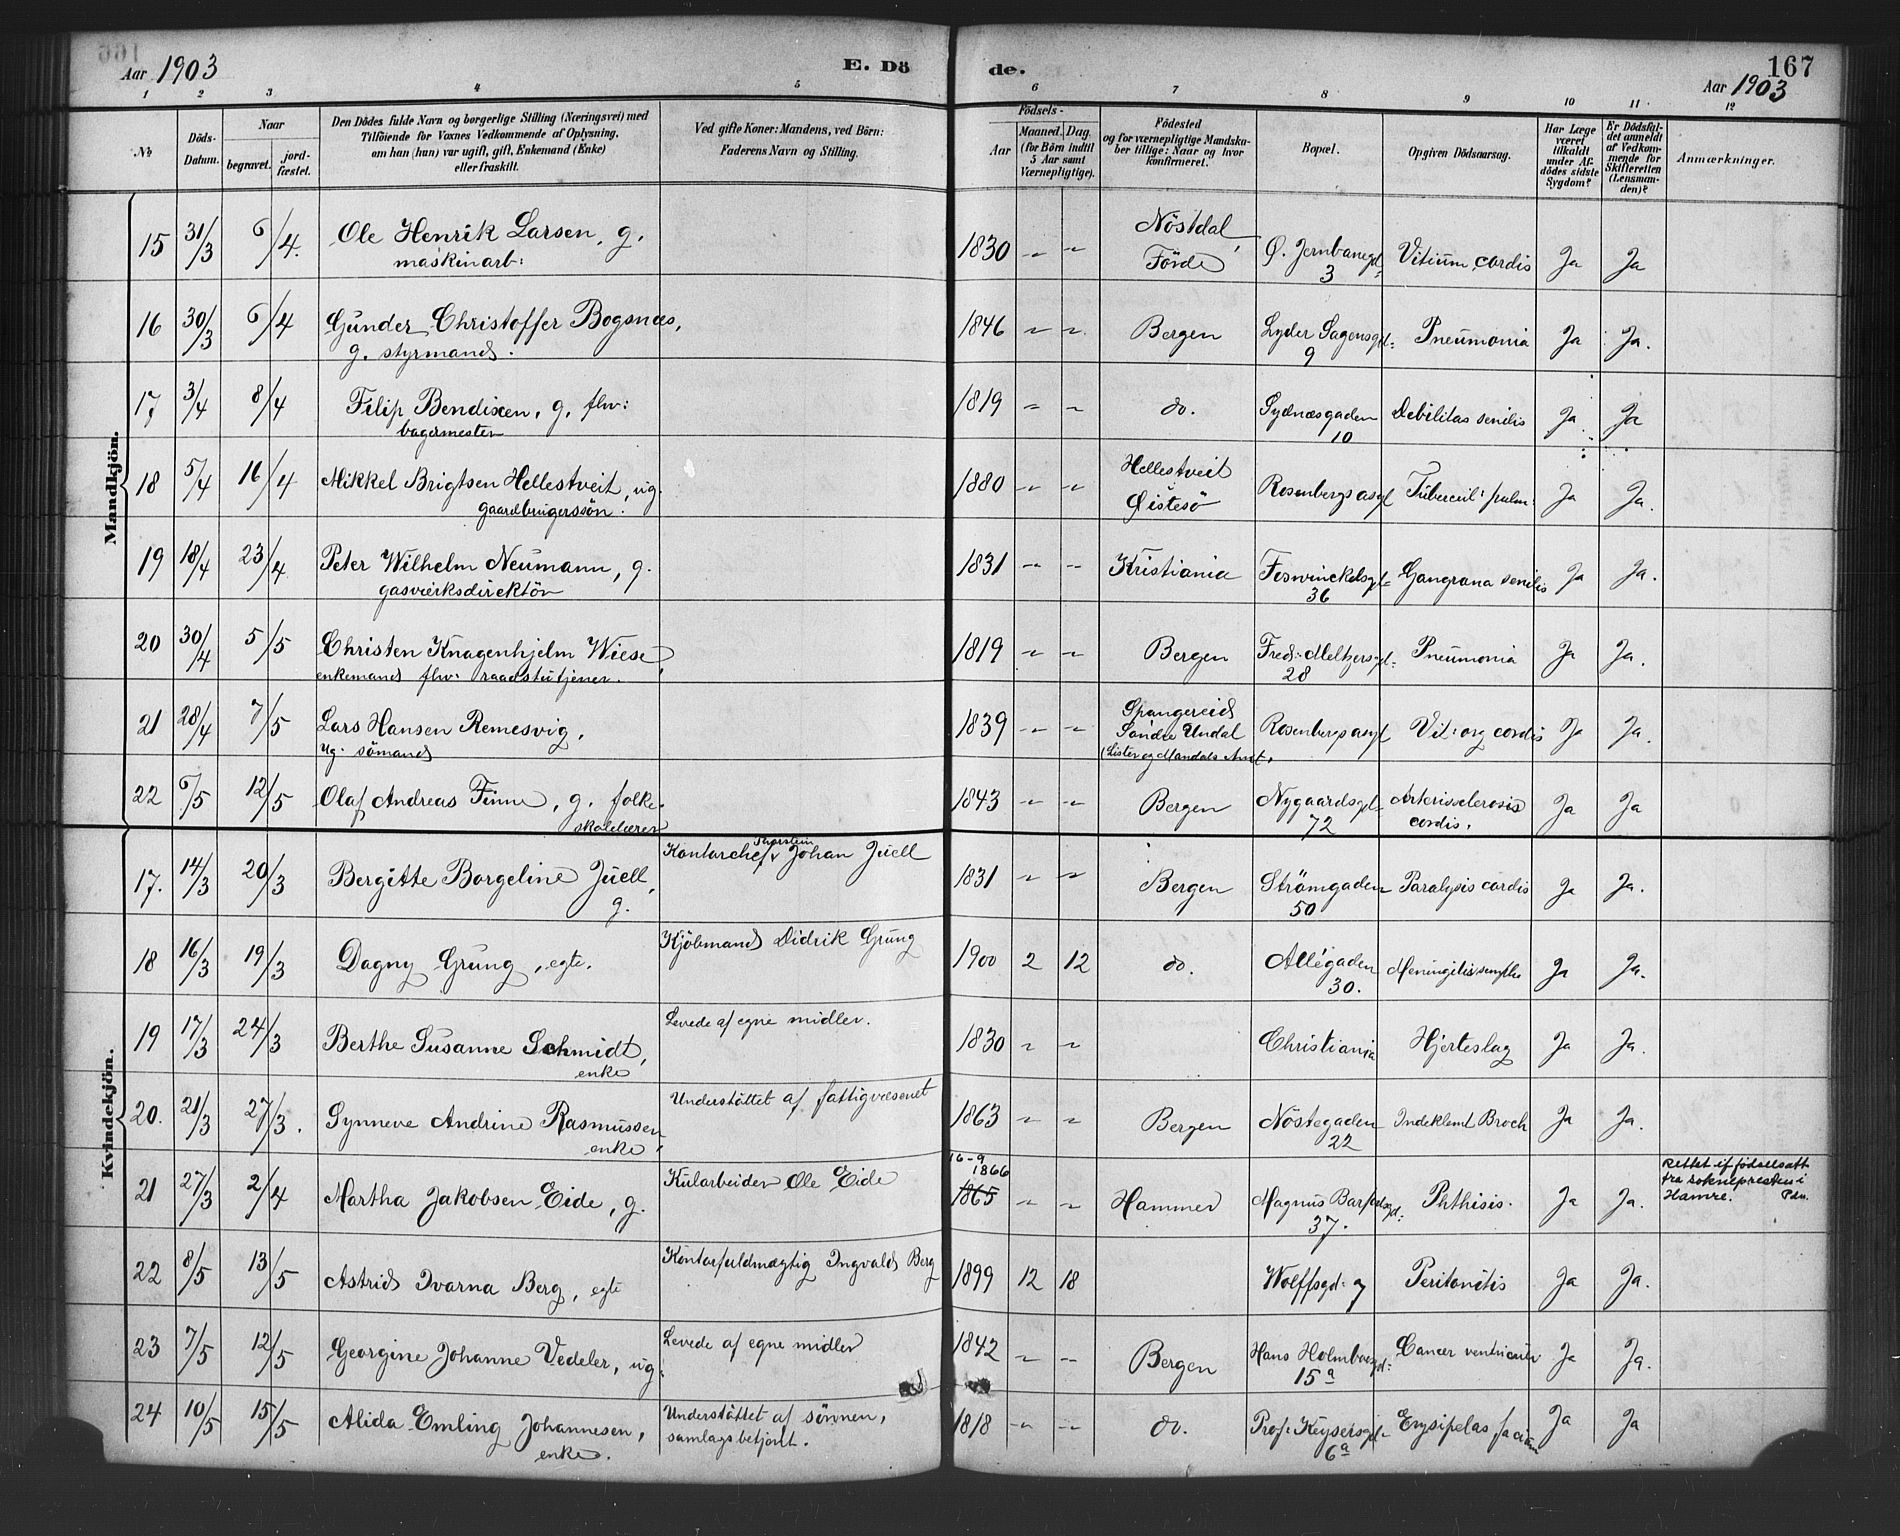 Aar 1903
E. Dö
de.
167
Aar 1903
1 2 3 4 5 6 7 8 9 10 11 12
№
Döds-Datum.
Naar
begravet.
jord-fæstet.
Den Dödes fulde Navn og borgerlige Stilling (Næringsvei) med
Tilföiende for Voxnes Vedkommende af Oplysning,
om han (hun) var ugift, gift, Enkemand (Enke)
eller fraskilt.
Ved gifte Koner: Mandens, ved Börn:
Faderens Navn og Stilling.
Födsels-
Aar
Maaned. Dag.
(for Börn indtil
5 Aar samt
Værnepligtige).
Födested
og for værnepligtige Mandska-
ber tillige: Naar og hvor
konfirmeret.
Bopæl.
Opgiven Dödsaarsag.
Har Læge
været
tilkaldt
under Af-
dödes sidste
Sygdom?
Er Dödsfal-
det anmeldt
af Vedkom-
mende for
Skifteretten
(Lensman-
den)?
Anmærkninger.
Mandkjön.
15 31/3 6/4. Ole Henrik Larsen, g.
maskinarb:
1830 " " Nöstdal, Förde Ø. Jernbanegd: 3 Vitium cordis Ja Ja
16 30/3 6/4 Gunder Christoffer Bogsnæs,
g. styrmand.
1846 " " Bergen Lyder Sagensgd: 9 Pneumonia Ja Ja.
17 3/4 8/4 Filip Bendixen, g, fhv:
bagermester
1819 " " do. Sydnæsgaden 10 Debilitas senilis Ja Ja
18 5/4 16/4 Mikkel Brigtsen Hellestveit, ug.
gaardbrugerssön.
1880 " " Hellestveit Østesö Rosenbergs asyl Tubercul: pulm: Ja Ja.
19 18/4 23/4 Peter Wilhelm Neumann, g.
gasværksdirektör
1831 " " Kristiania Foswinckelsgd: 36 Gangræna senilis Ja Ja.
20 30/4 5/5 Christen Knagenhjelm Wiese,
enkemand fhv: raadstutjener.
1819 " " Bergen Fred: Meltzersgd: 28 Pneumonia Ja Ja.
21 28/4 7/5 Lars Hansen Remesvig,
ug. sömand
1839 " " Spangereid Söndre Undal (Lister og Mandals Amt. Rosenbergs asyl Vit: org cordis Ja Ja.
22 6/5 12/5 Olaf Andreas Finne, g. folke-
skolelærer
1843 " " Bergen Nygaardsgd: 72 Arteriosclerosis cordis. Ja Ja
Kvindekjön.
17. 14/3 20/3 Bergitte Borgeline Juell,
g.
Kontorchef Thorstein Johan Juell
1831 " " Bergen Strömgaden 50 Paralysis cordis Ja Ja.
18 16/3 19/3 Dagny Grung, egte.
Kjöbmand Didrik Grung
1900 2 12 do. Allégaden 30. Meningitis simplex Ja Ja.
19 17/3 24/3 Berthe Susanne Schmidt,
enke
Levede af egne midler.
1830 " " Christiania Hjerteslag Ja Ja.
20. 21/3 27/3. Synneve Andrine Rasmussen,
enke
Understöttet af fattigvæsenet
1863 " " Bergen Nöstegaden 22 Indeklemt Brock Ja Ja.
21 27/3 2/4 Martha Jakobsen Eide, g.
Kularbeider Ole Eide
16-9 1866
1865 " " Hammer Magnus Barfodsgd: 37. Phthisis. Ja Ja.
Rettet if fødselsatt
fra sokneprestен i
Hamre.
22 8/5 13/5 Astrid Ivarna Berg, egte
Kontorfuldmægtig Ingvald Berg
1899 12 18 Wolffsgd: 7 Peritonitis Ja Ja.
23 7/5 12/5 Georgine Johanne Vedeler, ug.
Levede af egne midler
1842 " " Bergen Hans Holmboesgd: 15ᵃ Cancer ventriculi Ja Ja.
24 10/5 15/5 Alida Emling Johannesen,
enke.
Understöttet af sönnen,
samlagsbetjent.
1818 " " do. Prof: Keysersgd: 6ᵃ Erysipelas faciem Ja Ja